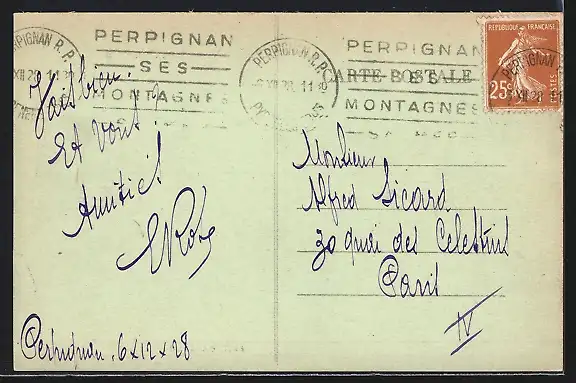 PERPIGNAN R.P.
XII 28 11
PERPIGNAN
SES
MONTAGNES
PERPIGNAN R.P.
6 XII 28 11 30
PERPIGNAN
SES
MONTAGNES
SA MER
CARTE POSTALE
REPUBLIQUE FRANÇAISE
25c
POSTES
PERPIGNAN
XII 28
Vais bien.
Et vous?
Amitiés
Monsieur
Alfred Sicard
30 quai des Celestins
Paris
IV
Perpignan, 6 X 12 X 28